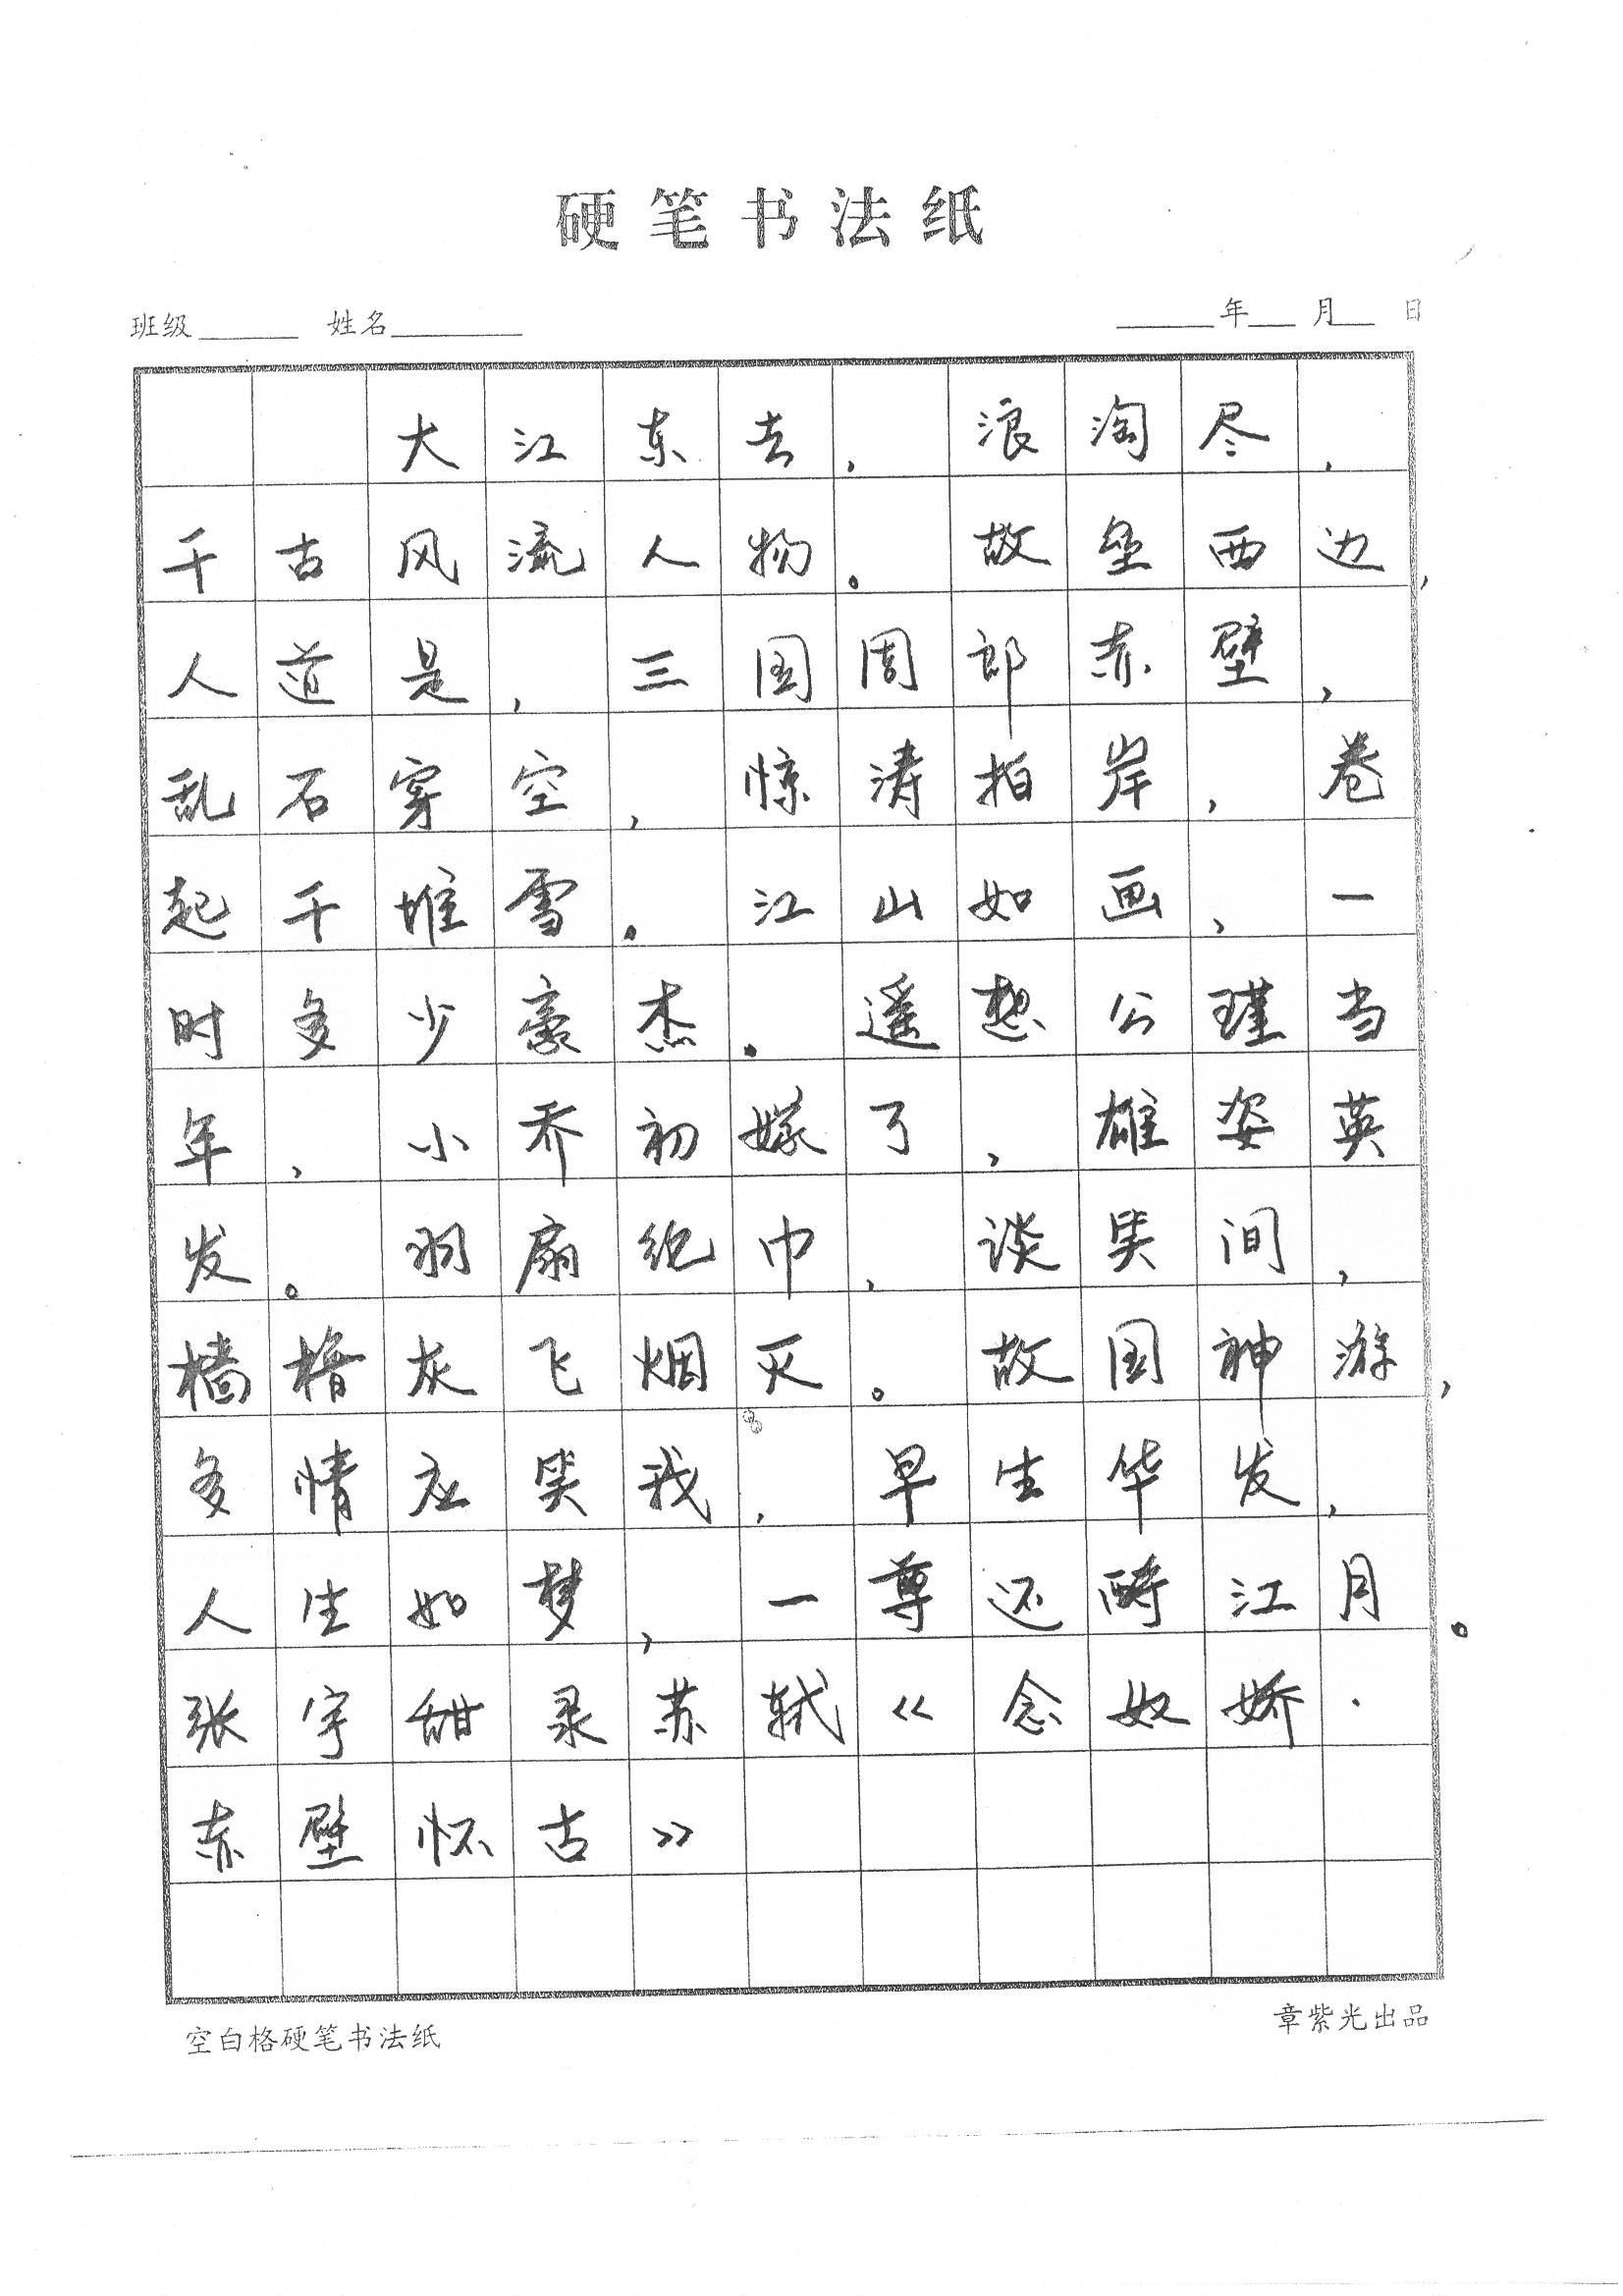 硬笔书法纸
班级 姓名 年 月 日
大江东去,浪淘尽,
千古风流人物。故垒西边,
人道是,三国周郎赤壁,
乱石穿空,惊涛拍岸,卷
起千堆雪。江山如画,一
时多少豪杰。遥想公瑾当
年,小乔初嫁了,雄姿英
发。羽扇纶巾,谈笑间,
樯橹灰飞烟灭。故国神游,
多情应笑我,早生华发,
人生如梦,一尊还酹江月。
张宇甜录苏轼《念奴娇·
赤壁怀古》
空白格硬笔书法纸 章紫光出品